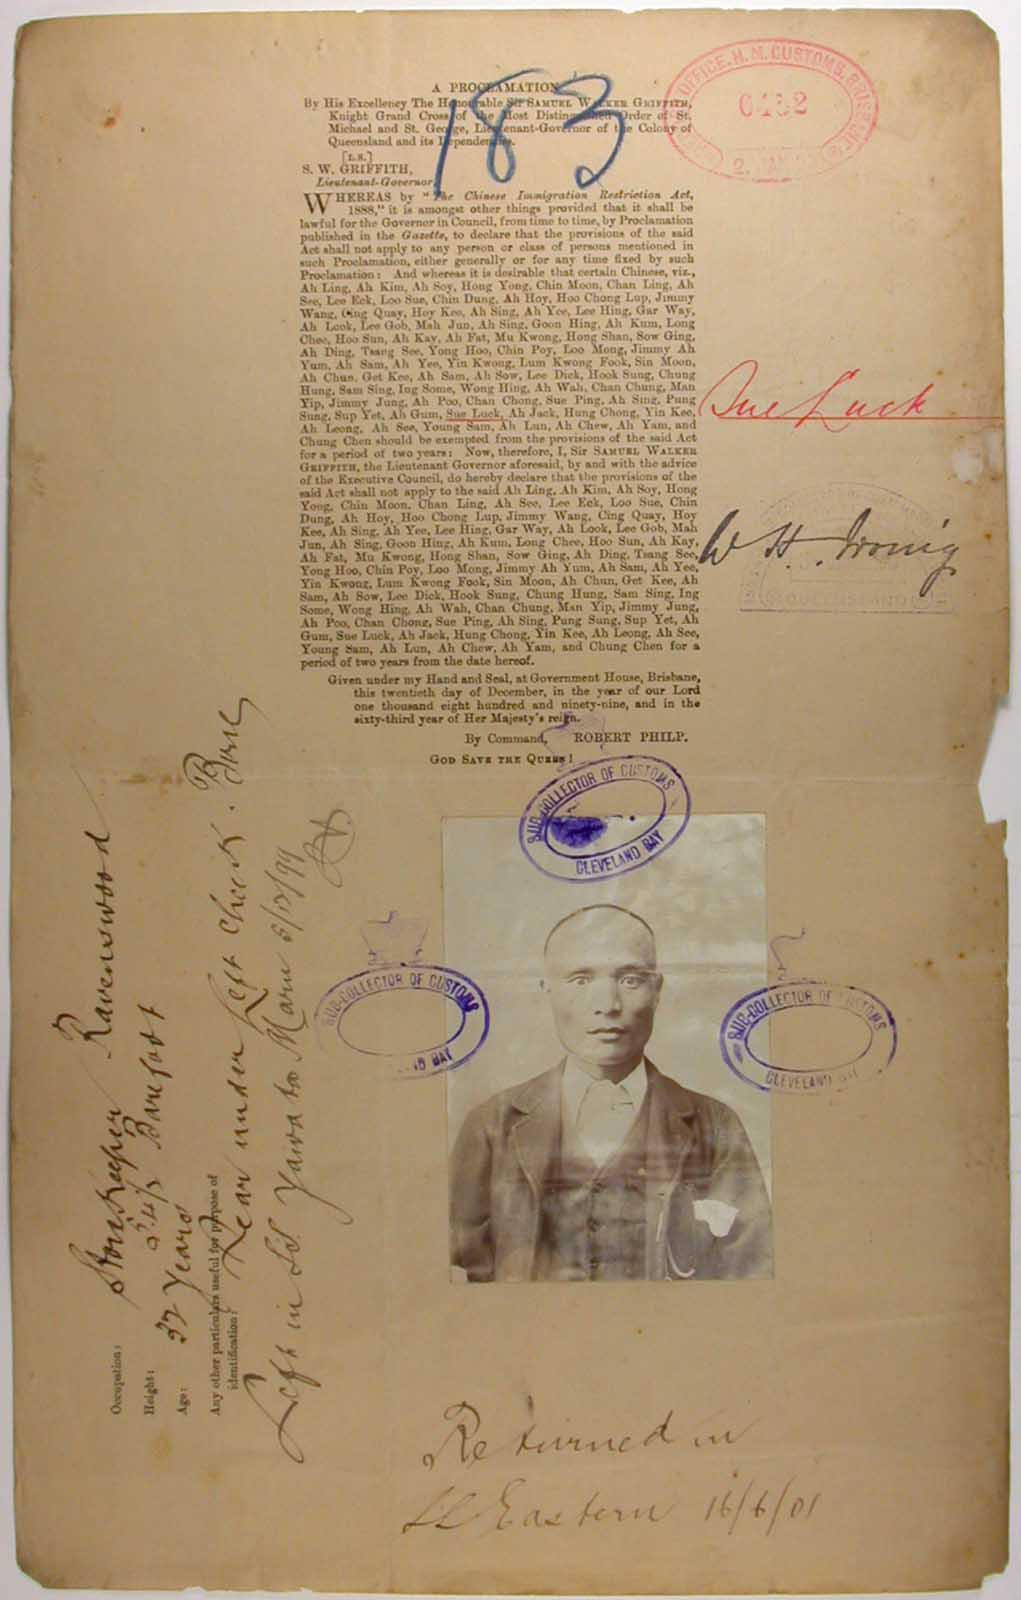 183
OFFICE. H. M. CUSTOMS. BRISBANE
0452
2. JAN
A PROCLAMATION
By His Excellency The Honourable Sir SAMUEL WALKER GRIFFITH,
Knight Grand Cross of the Most Distinguished Order of St.
Michael and St. George, Lieutenant-Governor of the Colony of
Queensland and its Dependencies.
[L.S.]
S. W. GRIFFITH,
Lieutenant-Governor.
WHEREAS by "The Chinese Immigration Restriction Act,
1888," it is amongst other things provided that it shall be
lawful for the Governor in Council, from time to time, by Proclamation
published in the Gazette, to declare that the provisions of the said
Act shall not apply to any person or class of persons mentioned in
such Proclamation, either generally or for any time fixed by such
Proclamation: And whereas it is desirable that certain Chinese, viz.,
Ah Ling, Ah Kim, Ah Soy, Hong Yong, Chin Moon, Chan Ling, Ah
See, Lee Eck, Loo Sue, Chin Dung, Ah Hoy, Hoo Chong Lup, Jimmy
Wang, Cing Quay, Hoy Kee, Ah Sing, Ah Yee, Lee Hing, Gar Way,
Ah Look, Lee Gob, Mah Jun, Ah Sing, Goon Hing, Ah Kum, Long
Chee, Hoo Sun, Ah Kay, Ah Fat, Mu Kwong, Hong Shan, Sow Ging,
Ah Ding, Tsang See, Yong Hoo, Chin Poy, Loo Mong, Jimmy Ah
Yum, Ah Sam, Ah Yee, Yin Kwong, Lum Kwong Fook, Sin Moon,
Ah Chun, Get Kee, Ah Sam, Ah Sow, Lee Dick, Hook Sung, Chung
Hung, Sam Sing, Ing Some, Wong Hing, Ah Wah, Chan Chung, Man
Yip, Jimmy Jung, Ah Poo, Chan Chong, Sue Ping, Ah Sing, Pung
Sung, Sup Yet, Ah Gum, Sue Luck, Ah Jack, Hung Chong, Yin Kee,
Ah Leong, Ah See, Young Sam, Ah Lun, Ah Chew, Ah Yam, and
Chung Chen should be exempted from the provisions of the said Act
for a period of two years: Now, therefore, I, Sir SAMUEL WALKER
GRIFFITH, the Lieutenant Governor aforesaid, by and with the advice
of the Executive Council, do hereby declare that the provisions of the
said Act shall not apply to the said Ah Ling, Ah Kim, Ah Soy, Hong
Yong, Chin Moon, Chan Ling, Ah See, Lee Eck, Loo Sue, Chin
Dung, Ah Hoy, Hoo Chong Lup, Jimmy Wang, Cing Quay, Hoy
Kee, Ah Sing, Ah Yee, Lee Hing, Gar Way, Ah Look, Lee Gob, Mah
Jun, Ah Sing, Goon Hing, Ah Kum, Long Chee, Hoo Sun, Ah Kay,
Ah Fat, Mu Kwong, Hong Shan, Sow Ging, Ah Ding, Tsang See,
Yong Hoo, Chin Poy, Loo Mong, Jimmy Ah Yum, Ah Sam, Ah Yee,
Yin Kwong, Lum Kwong Fook, Sin Moon, Ah Chun, Get Kee, Ah
Sam, Ah Sow, Lee Dick, Hook Sung, Chung Hung, Sam Sing, Ing
Some, Wong Hing, Ah Wah, Chan Chung, Man Yip, Jimmy Jung,
Ah Poo, Chan Chong, Sue Ping, Ah Sing, Pung Sung, Sup Yet, Ah
Gum, Sue Luck, Ah Jack, Hung Chong, Yin Kee, Ah Leong, Ah See,
Young Sam, Ah Lun, Ah Chew, Ah Yam, and Chung Chen for a
period of two years from the date hereof.
Given under my Hand and Seal, at Government House, Brisbane,
this twentieth day of December, in the year of our Lord
one thousand eight hundred and ninety-nine, and in the
sixty-third year of Her Majesty's reign.
By Command, ROBERT PHILP.
GOD SAVE THE QUEEN!
Sue Luck
W H. Irving
QUEENSLAND
SUB-COLLECTOR OF CUSTOMS
CLEVELAND BAY
SUB-COLLECTOR OF CUSTOMS
BAY
SUB-COLLECTOR OF CUSTOMS
CLEVELAND
Occupation: Storekeeper Ravenswood
Height: 5.4½ Barefoot
Age: 32 Years
Any other particulars useful for purpose of
identification: Scar under Left Cheek.
Left in SS. Yawata Maru 5/12/99
Returned in
SS Eastern 16/6/01